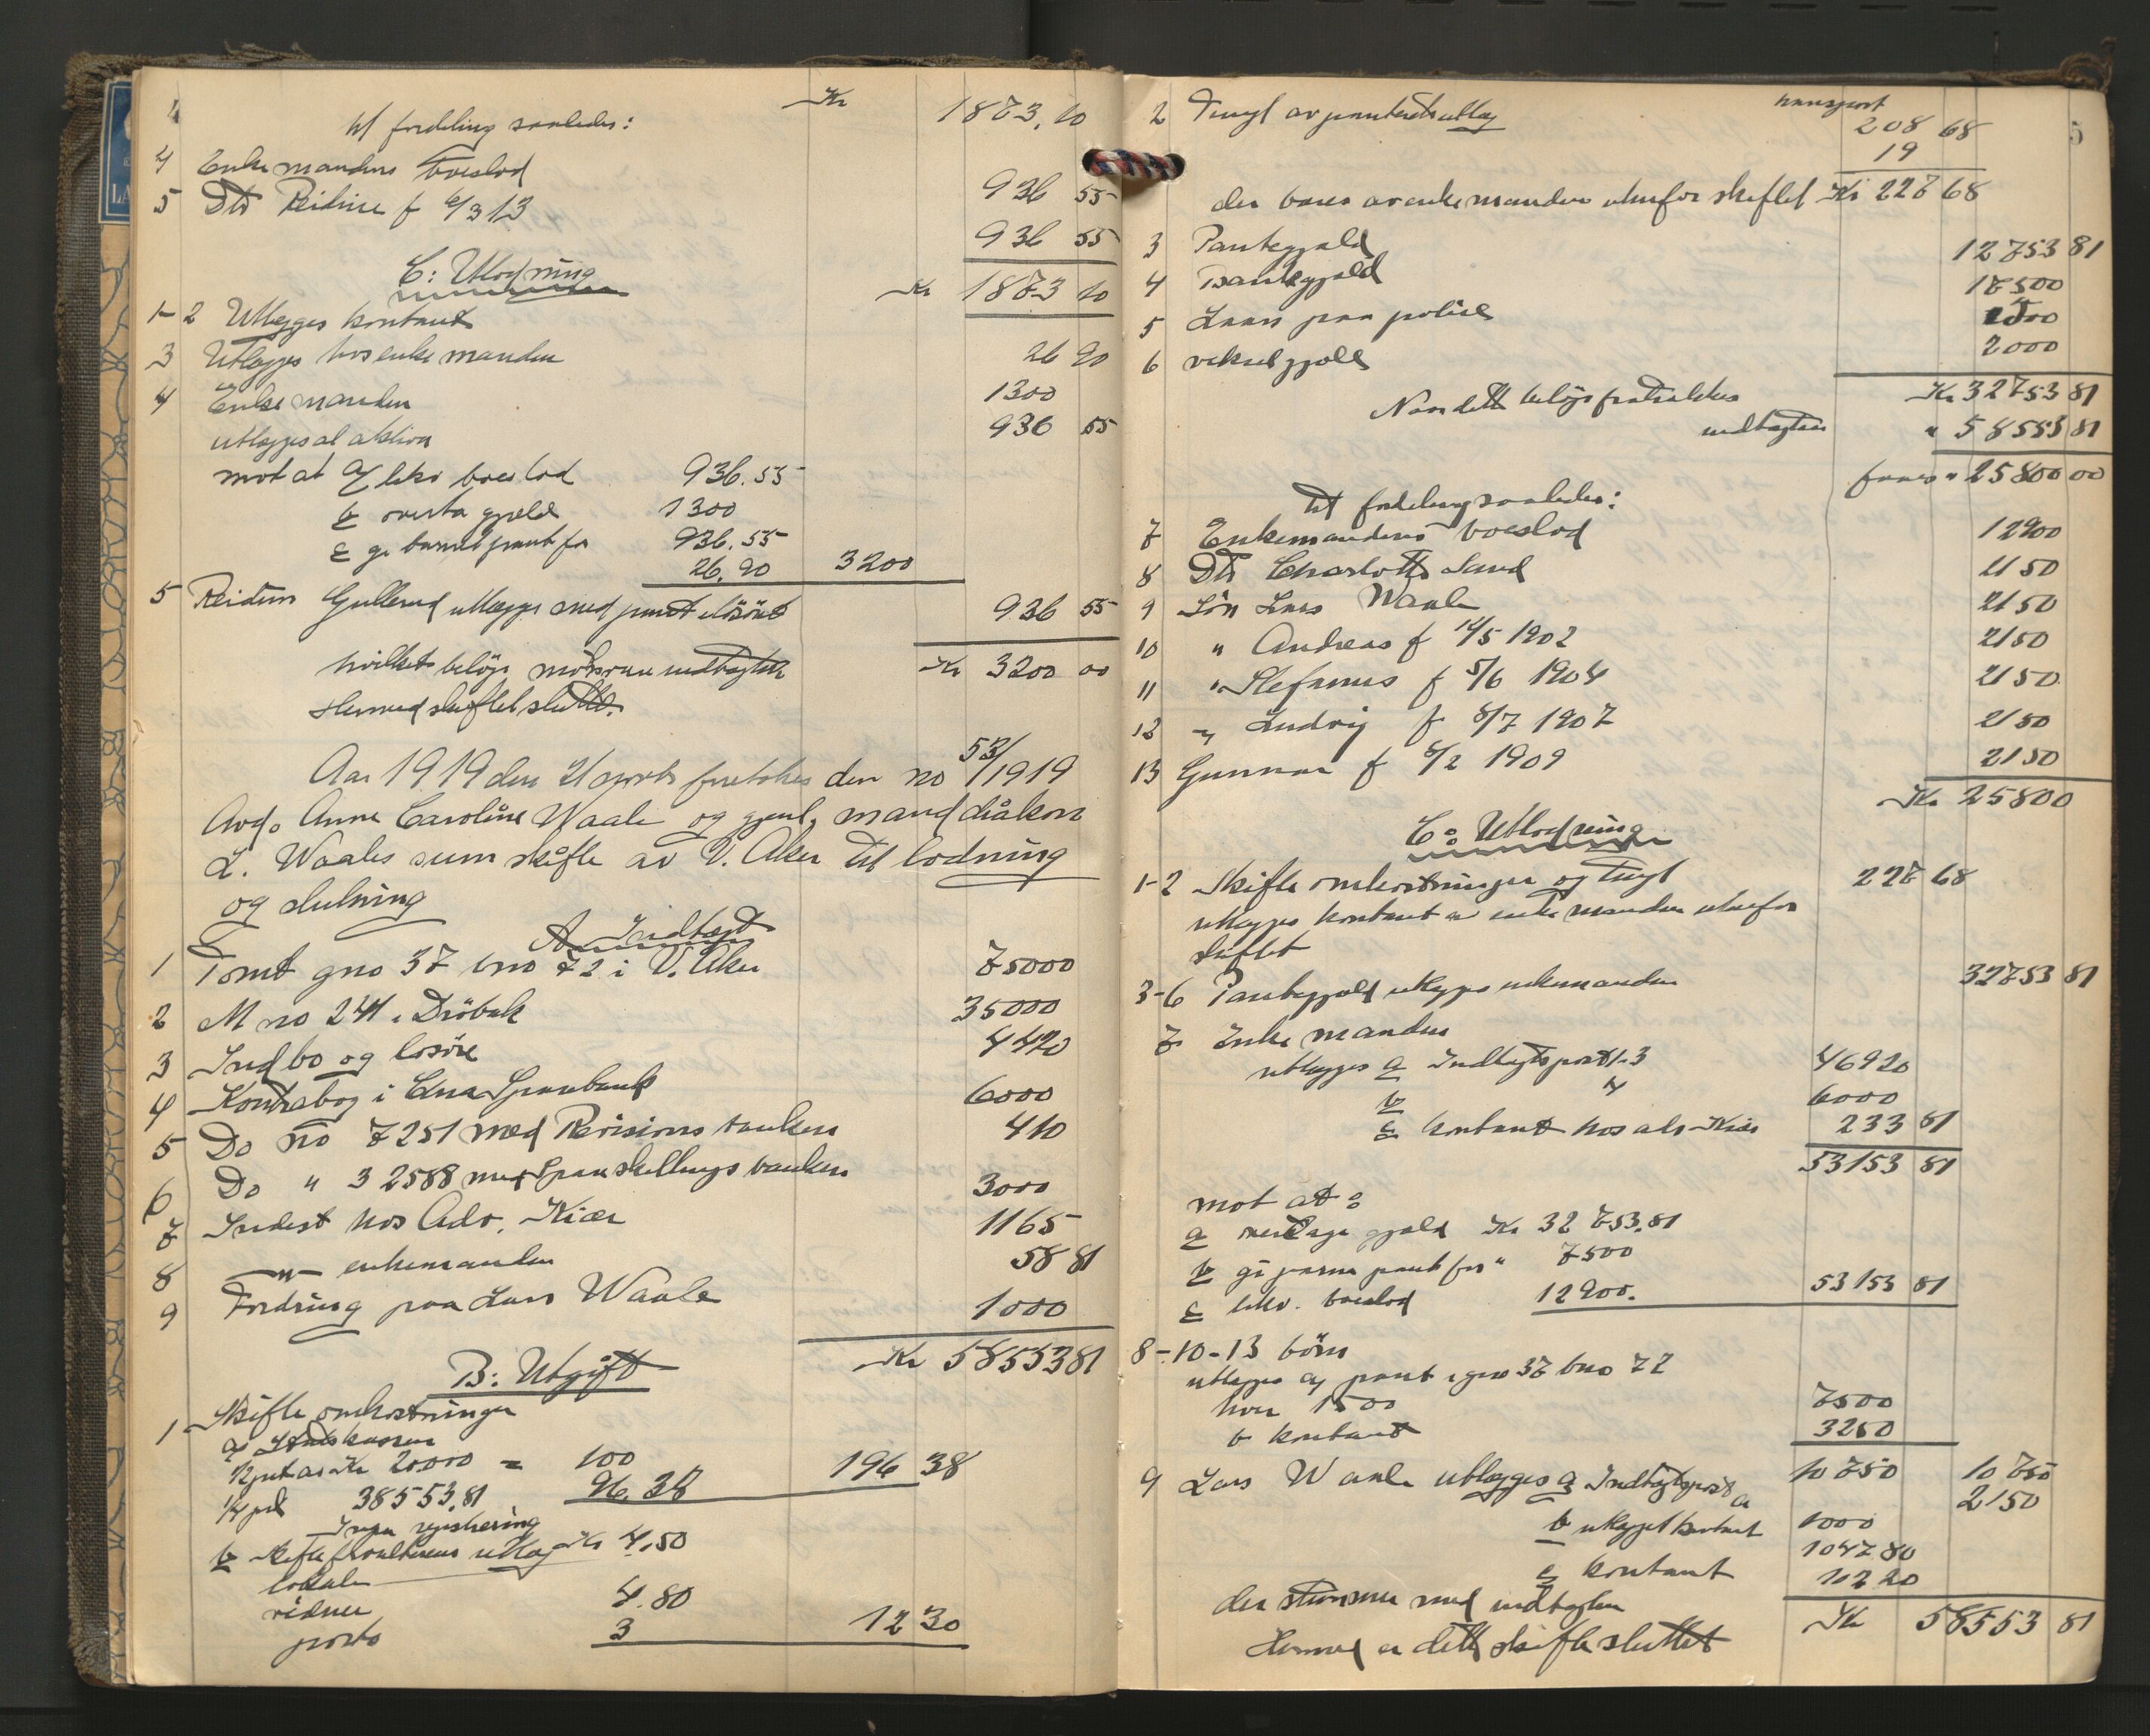 4
til fordeling saaledes: Kr 1873,10
4 Enkemandens boeslod 936 55
5 Dtr Reidun f 6/3 13 936 55
Kr 1873 10
C: Utlodning
1-2 Utlegges kontant 26 90
3 Utlegges hos enkemanden 1300
4 Enkemanden 936 55
utlegges al aktiva
mot at a) beko boeslod 936.55
b overta gjæld 1300
c gi barnet pant for 936.55
26.90 3200
5 Reidun Gullerud utlegges med pant i løsøre 936 55
hvilket beløp motsvarer indtægten Kr 3200 00
Hermed skiftet sluttet.
Aar 1919 den 21 foretokes den no 53/1919
Avd. Anne Caroline Waale og gjenl. mand diakon
L. Waales sum skifte av V. Aker til lodning
og slutning
A Indtægt
1 Tomt gno 37 bno 72 i V. Aker 75000
2 M no 241 i Drøbak 35000
3 Indbo og løsøre 4420
4 Kontrabog i Sparebank 6000
5 Do no 7251 med Revisions banken 410
6 Do " 32588 med Spareskillings banken 3000
7 Indest hos Adv. Kiær 1165
8 —"— enkemanden 58 81
9 Fordring paa Lars Waale 1000
Kr 58553 81
B: Utgift
1 Skifteomkostninger
a) Statskassen
1/2 pct av Kr 20000 = 100
1/4 pct 38553.81 96.38 196 38
registrering
b skifteforvalterens utlæg Kr 4.50
lokale
vidner 4.80
porto 3 12 30
5
transport
208 68
2 Tingl av panteretsutlæg 19
der bæres av enkemanden utenfor skiftet Kr 227 68
3 Pantegjæld 12753 81
4 Bankgjæld 17500
5 Laan paa polise 500
6 vekselgjæld 2000
Kr 32753 81
Naar dette beløp fratrækkes
indtægten " 58553 81
faaes " 25800 00
til fordeling saaledes:
7 Enkemandens boeslod 12900
8 Dtr Charlotte Lund 2150
9 Søn Lars Waale 2150
10 " Andreas f 14/5 1902 2150
11 " Stefanus f 5/6 1904 2150
12 " Ludvig f 8/7 1907 2150
13 Gunnar f 8/2 1909 2150
Kr 25800
C: Utlodning
1-2 Skifteomkostninger og tingl 227 68
utlegges kontant av enkemanden utenfor
skiftet
3-6 Pantegjæld utlegges enkemanden 32753 81
7 Enkemanden
utlegges a Indtægtspost 1-3 46920
b " 4 6000
c kontant hos adv Kiær 233 81
53153 81
mot at:
a overtage gjæld Kr 32 753.81
b gi barna pant for " 7500
c beko. boeslod 12900. 53153 81
8-10-13 børn
utlegges a) pant i gno 37 bno 72
hver 1500 7500
b kontant 3250
10750 10 750
9 Lars Waale utlegges a Indtægtspost 9 2150
b utlegges kontant 1000
1047 80
c kontant 102 20
der stemmer med indtægten
Kr 58553 81
Hermed er dette skifte sluttet